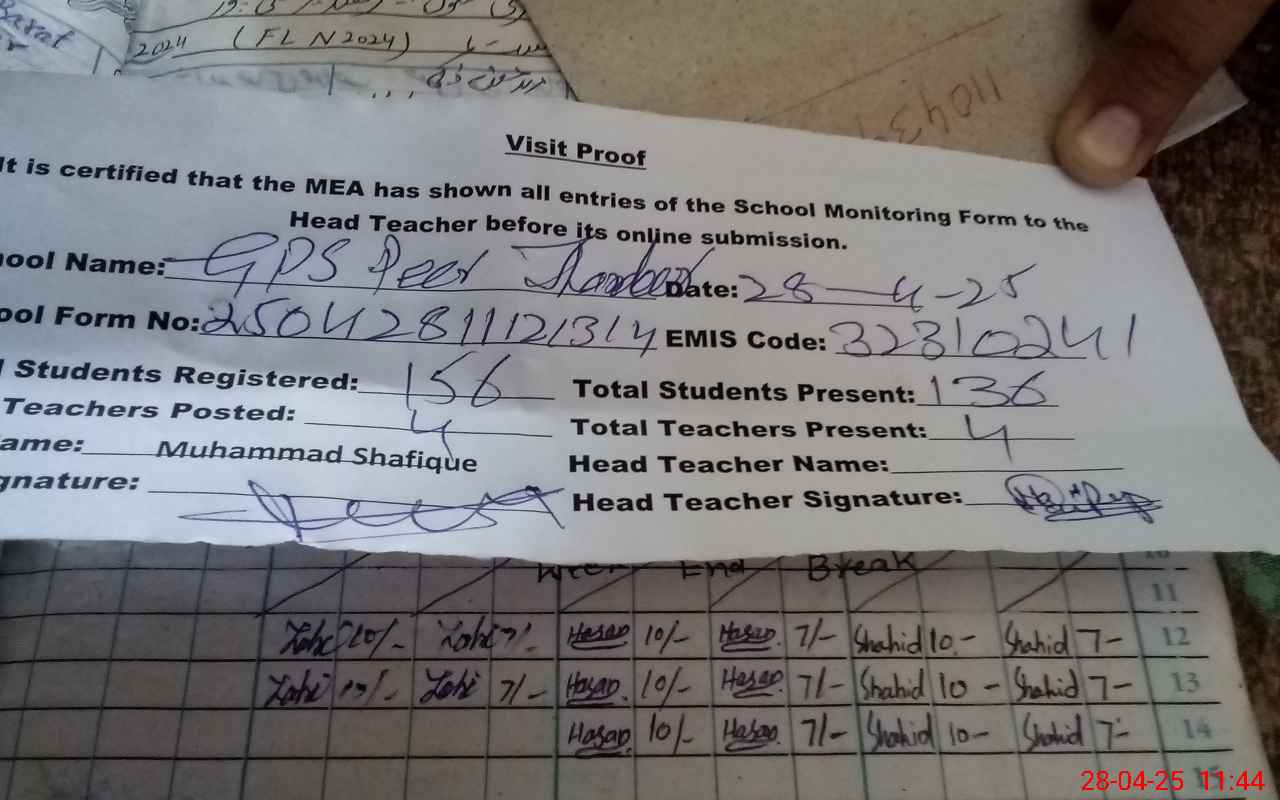 Barat
2024 (FLN2024)
11043
Visit Proof
It is certified that the MEA has shown all entries of the School Monitoring Form to the
Head Teacher before its online submission.
ool Name: GPS Peer Date: 28-4-25
ool Form No: 25042811121314 EMIS Code: 32310241
Students Registered: 156 Total Students Present: 136
Teachers Posted: 4 Total Teachers Present: 4
ame: Muhammad Shafique Head Teacher Name:
gnature: Head Teacher Signature:
Week End Break
11
Zohi 10/- Zohi 7/- Hasan 10/- Hasan 7/- Shahid 10- Shahid 7- 12
Zohi 10/- Zohi 7/- Hasan 10/- Hasan 7/- Shahid 10- Shahid 7- 13
Hasan 10/- Hasan 7/- Shahid 10- Shahid 7- 14
15
28-04-25 11:44